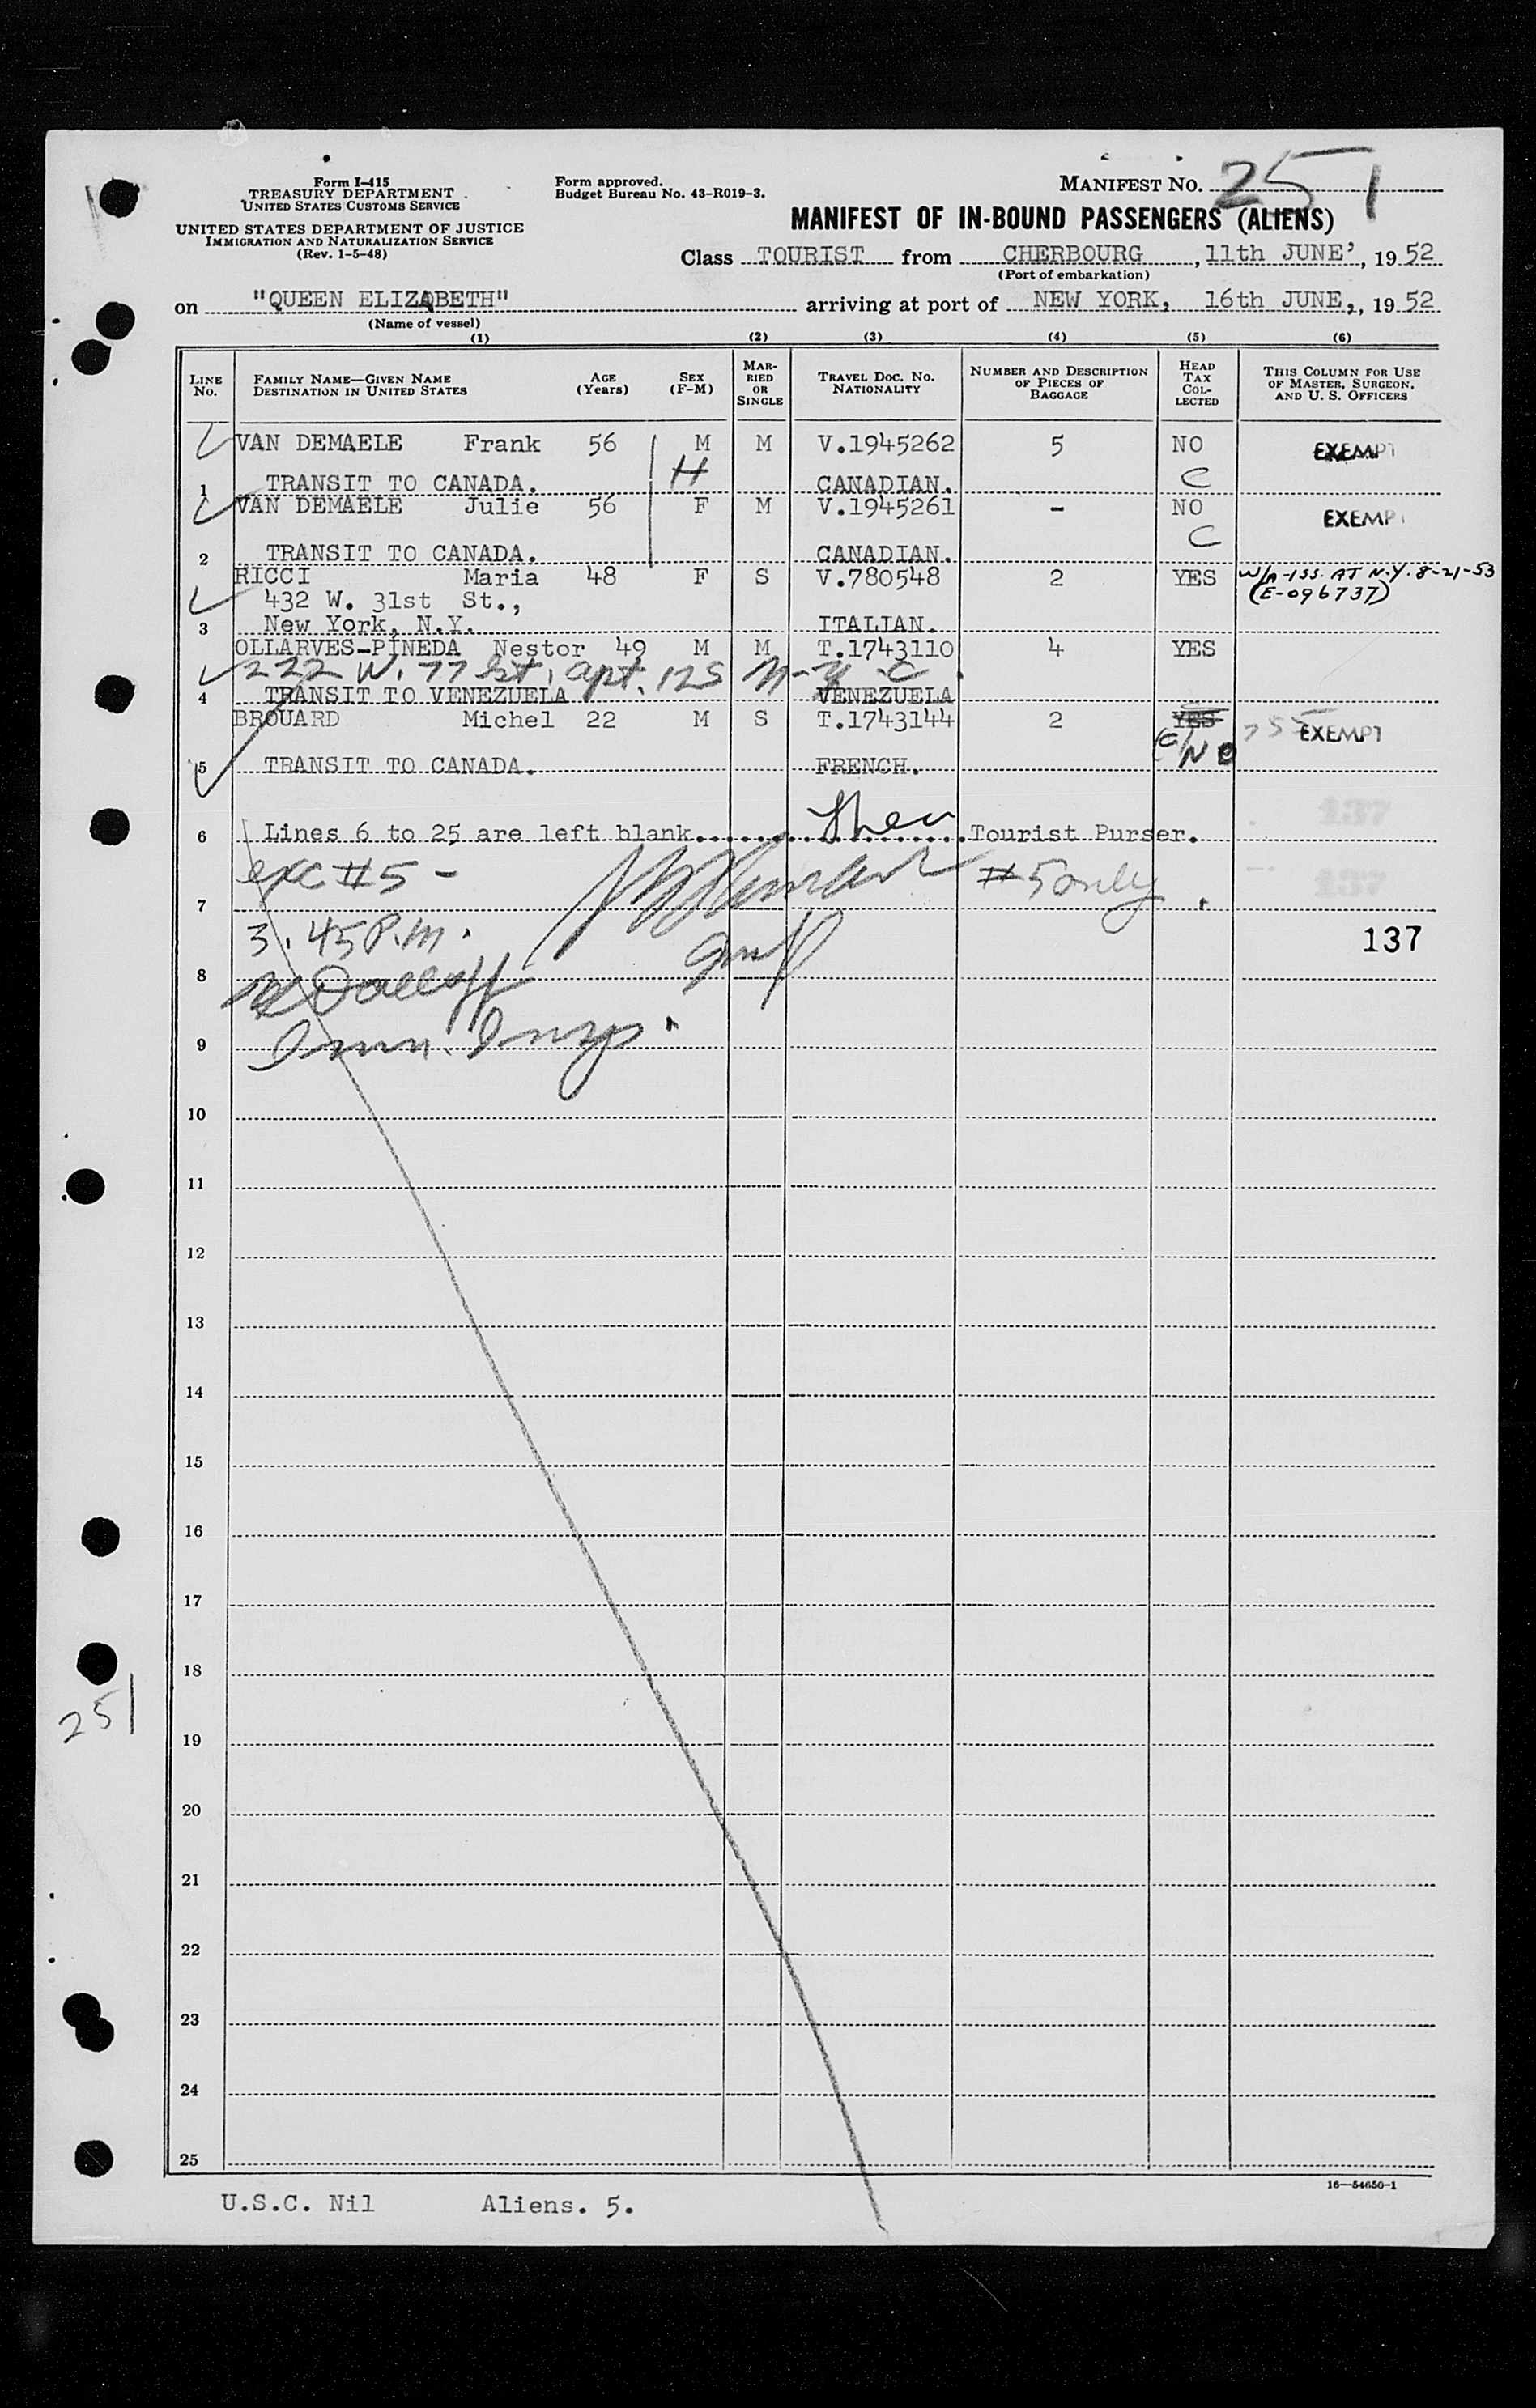 Form I-415
TREASURY DEPARTMENT
UNITED STATES CUSTOMS SERVICE
UNITED STATES DEPARTMENT OF JUSTICE
IMMIGRATION AND NATURALIZATION SERVICE
(Rev. 1-5-48)
Form approved.
Budget Bureau No. 43-R019-3.
MANIFEST NO. 251
MANIFEST OF IN-BOUND PASSENGERS (ALIENS)
Class TOURIST from CHERBOURG, 11th JUNE, 1952
(Port of embarkation)
on "QUEEN ELIZABETH" arriving at port of NEW YORK, 16th JUNE, 1952
(Name of vessel)
(1) (2) (3) (4) (5) (6)
LINE No. FAMILY NAME—GIVEN NAME DESTINATION IN UNITED STATES AGE (Years) SEX (F-M) MARRIED OR SINGLE TRAVEL DOC. NO. NATIONALITY NUMBER AND DESCRIPTION OF PIECES OF BAGGAGE HEAD TAX COLLECTED THIS COLUMN FOR USE OF MASTER, SURGEON, AND U. S. OFFICERS
VAN DEMAELE Frank 56 M M V.1945262 5 NO EXEMPT
H C
1 TRANSIT TO CANADA. CANADIAN.
VAN DEMAELE Julie 56 F M V.1945261 - NO EXEMPT
C
2 TRANSIT TO CANADA. CANADIAN.
RICCI Maria 48 F S V.780548 2 YES W/A-ISS. AT N.Y. 8-21-53
432 W. 31st St., (E-096737)
3 New York, N.Y. ITALIAN.
OLLARVES-PINEDA Nestor 49 M M T.1743110 4 YES
222 W. 77 St, apt. 125 N-Y-C
4 TRANSIT TO VENEZUELA VENEZUELA
BROUARD Michel 22 M S T.1743144 2 YES EXEMPT
C/NO
5 TRANSIT TO CANADA. FRENCH.
6 Lines 6 to 25 are left blank. Tourist Purser.
exc #5 - #5 only
7
3.45 P.M. 137
8
Imm. Insp.
9
10
11
12
13
14
15
16
17
18
251
19
20
21
22
23
24
25
16—54650-1
U.S.C. Nil Aliens. 5.